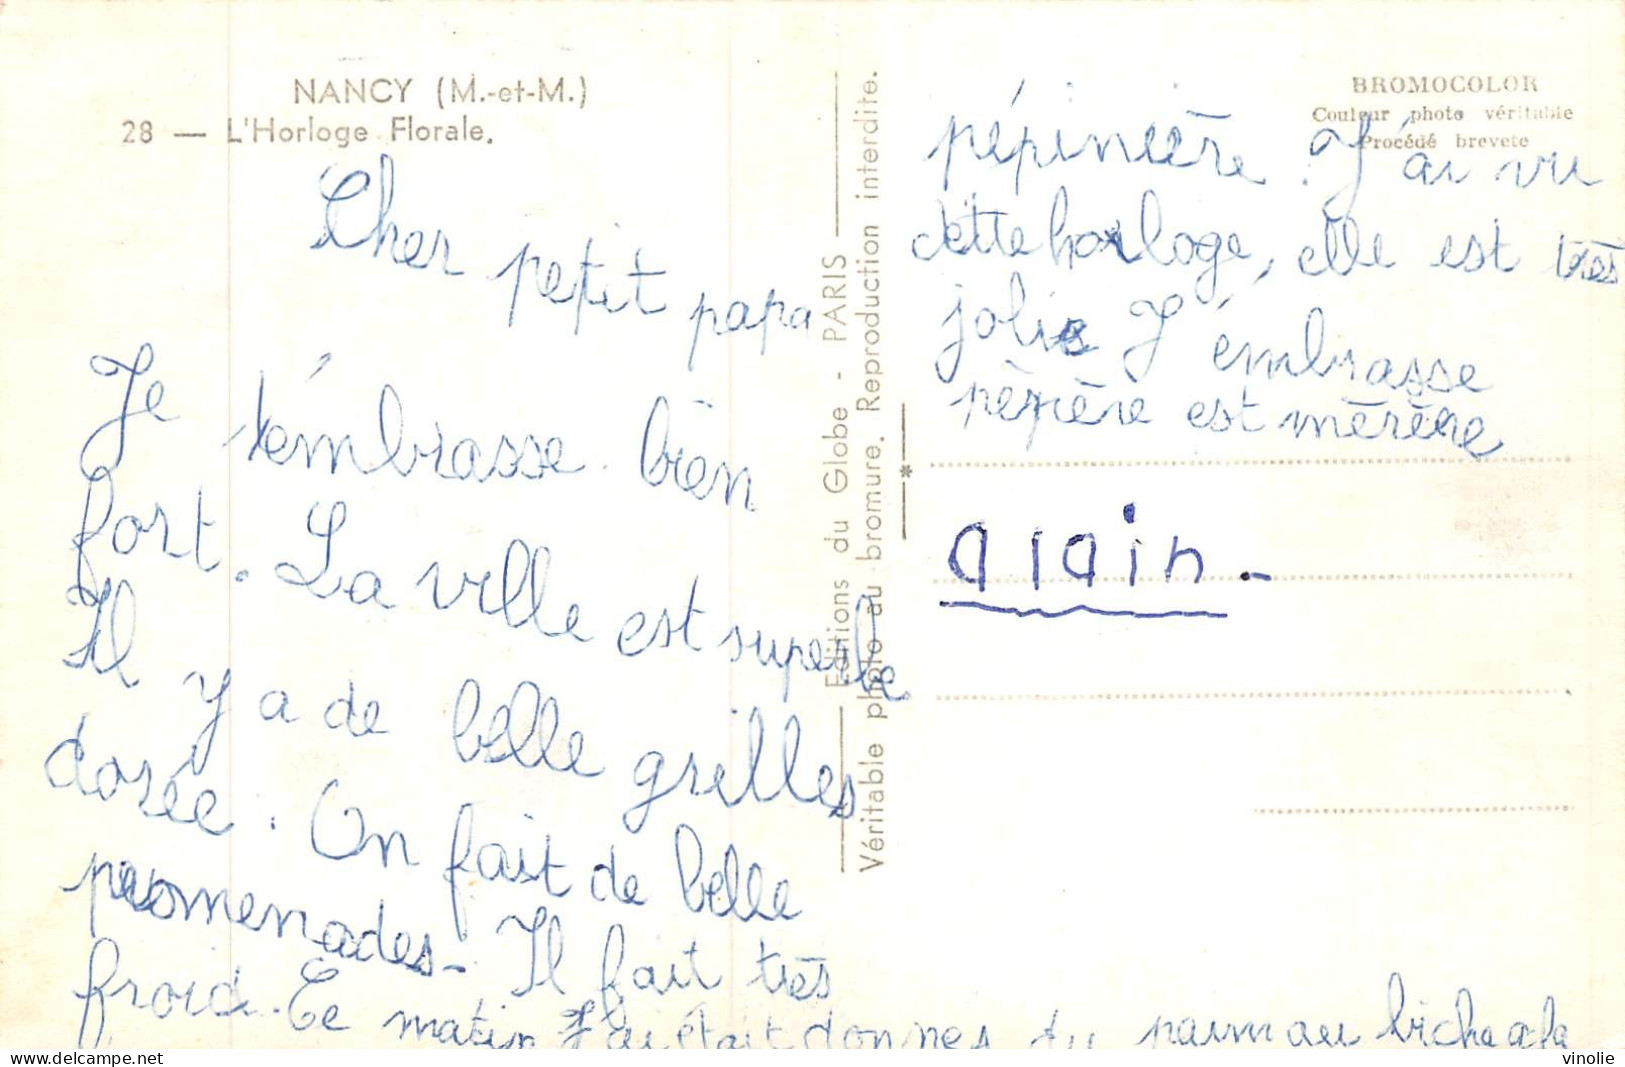 NANCY (M.-et-M.)
28 — L'Horloge Florale.
Cher petit papa
Je t'émbrasse bien
fort. La ville est superbe
Il y a de belle grilles
dorée. On fait de belle
promenades. Il fait très
froid. Ce matin J'ai était donnes du pain au biche a la
pépinière. J'ai vu
cette horloge, elle est très
jolie J'émbrasse
pèpère est mèrère
alain.
Editions du Globe - PARIS
Véritable photo au bromure. Reproduction interdite.
BROMOCOLOR
Couleur photo véritable
Procédé breveté
vinolie